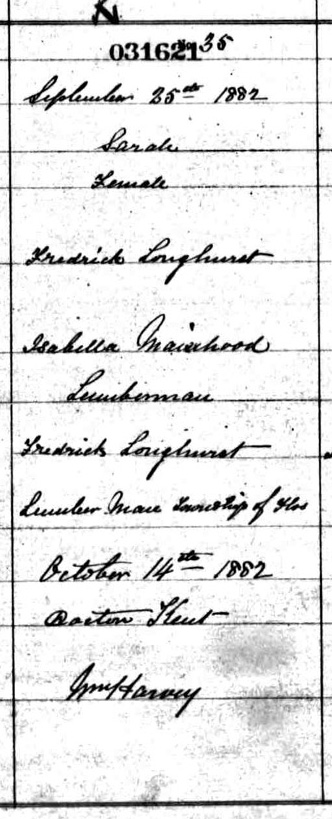 031621 35
September 25th 1882
Sarah
Female
Fredrick Longhurst
Isabella
Lumberman
Fredrick Longhurst
Lumber Man Township of Flos
October 14th 1882
Docton Kent
Wm Harvey